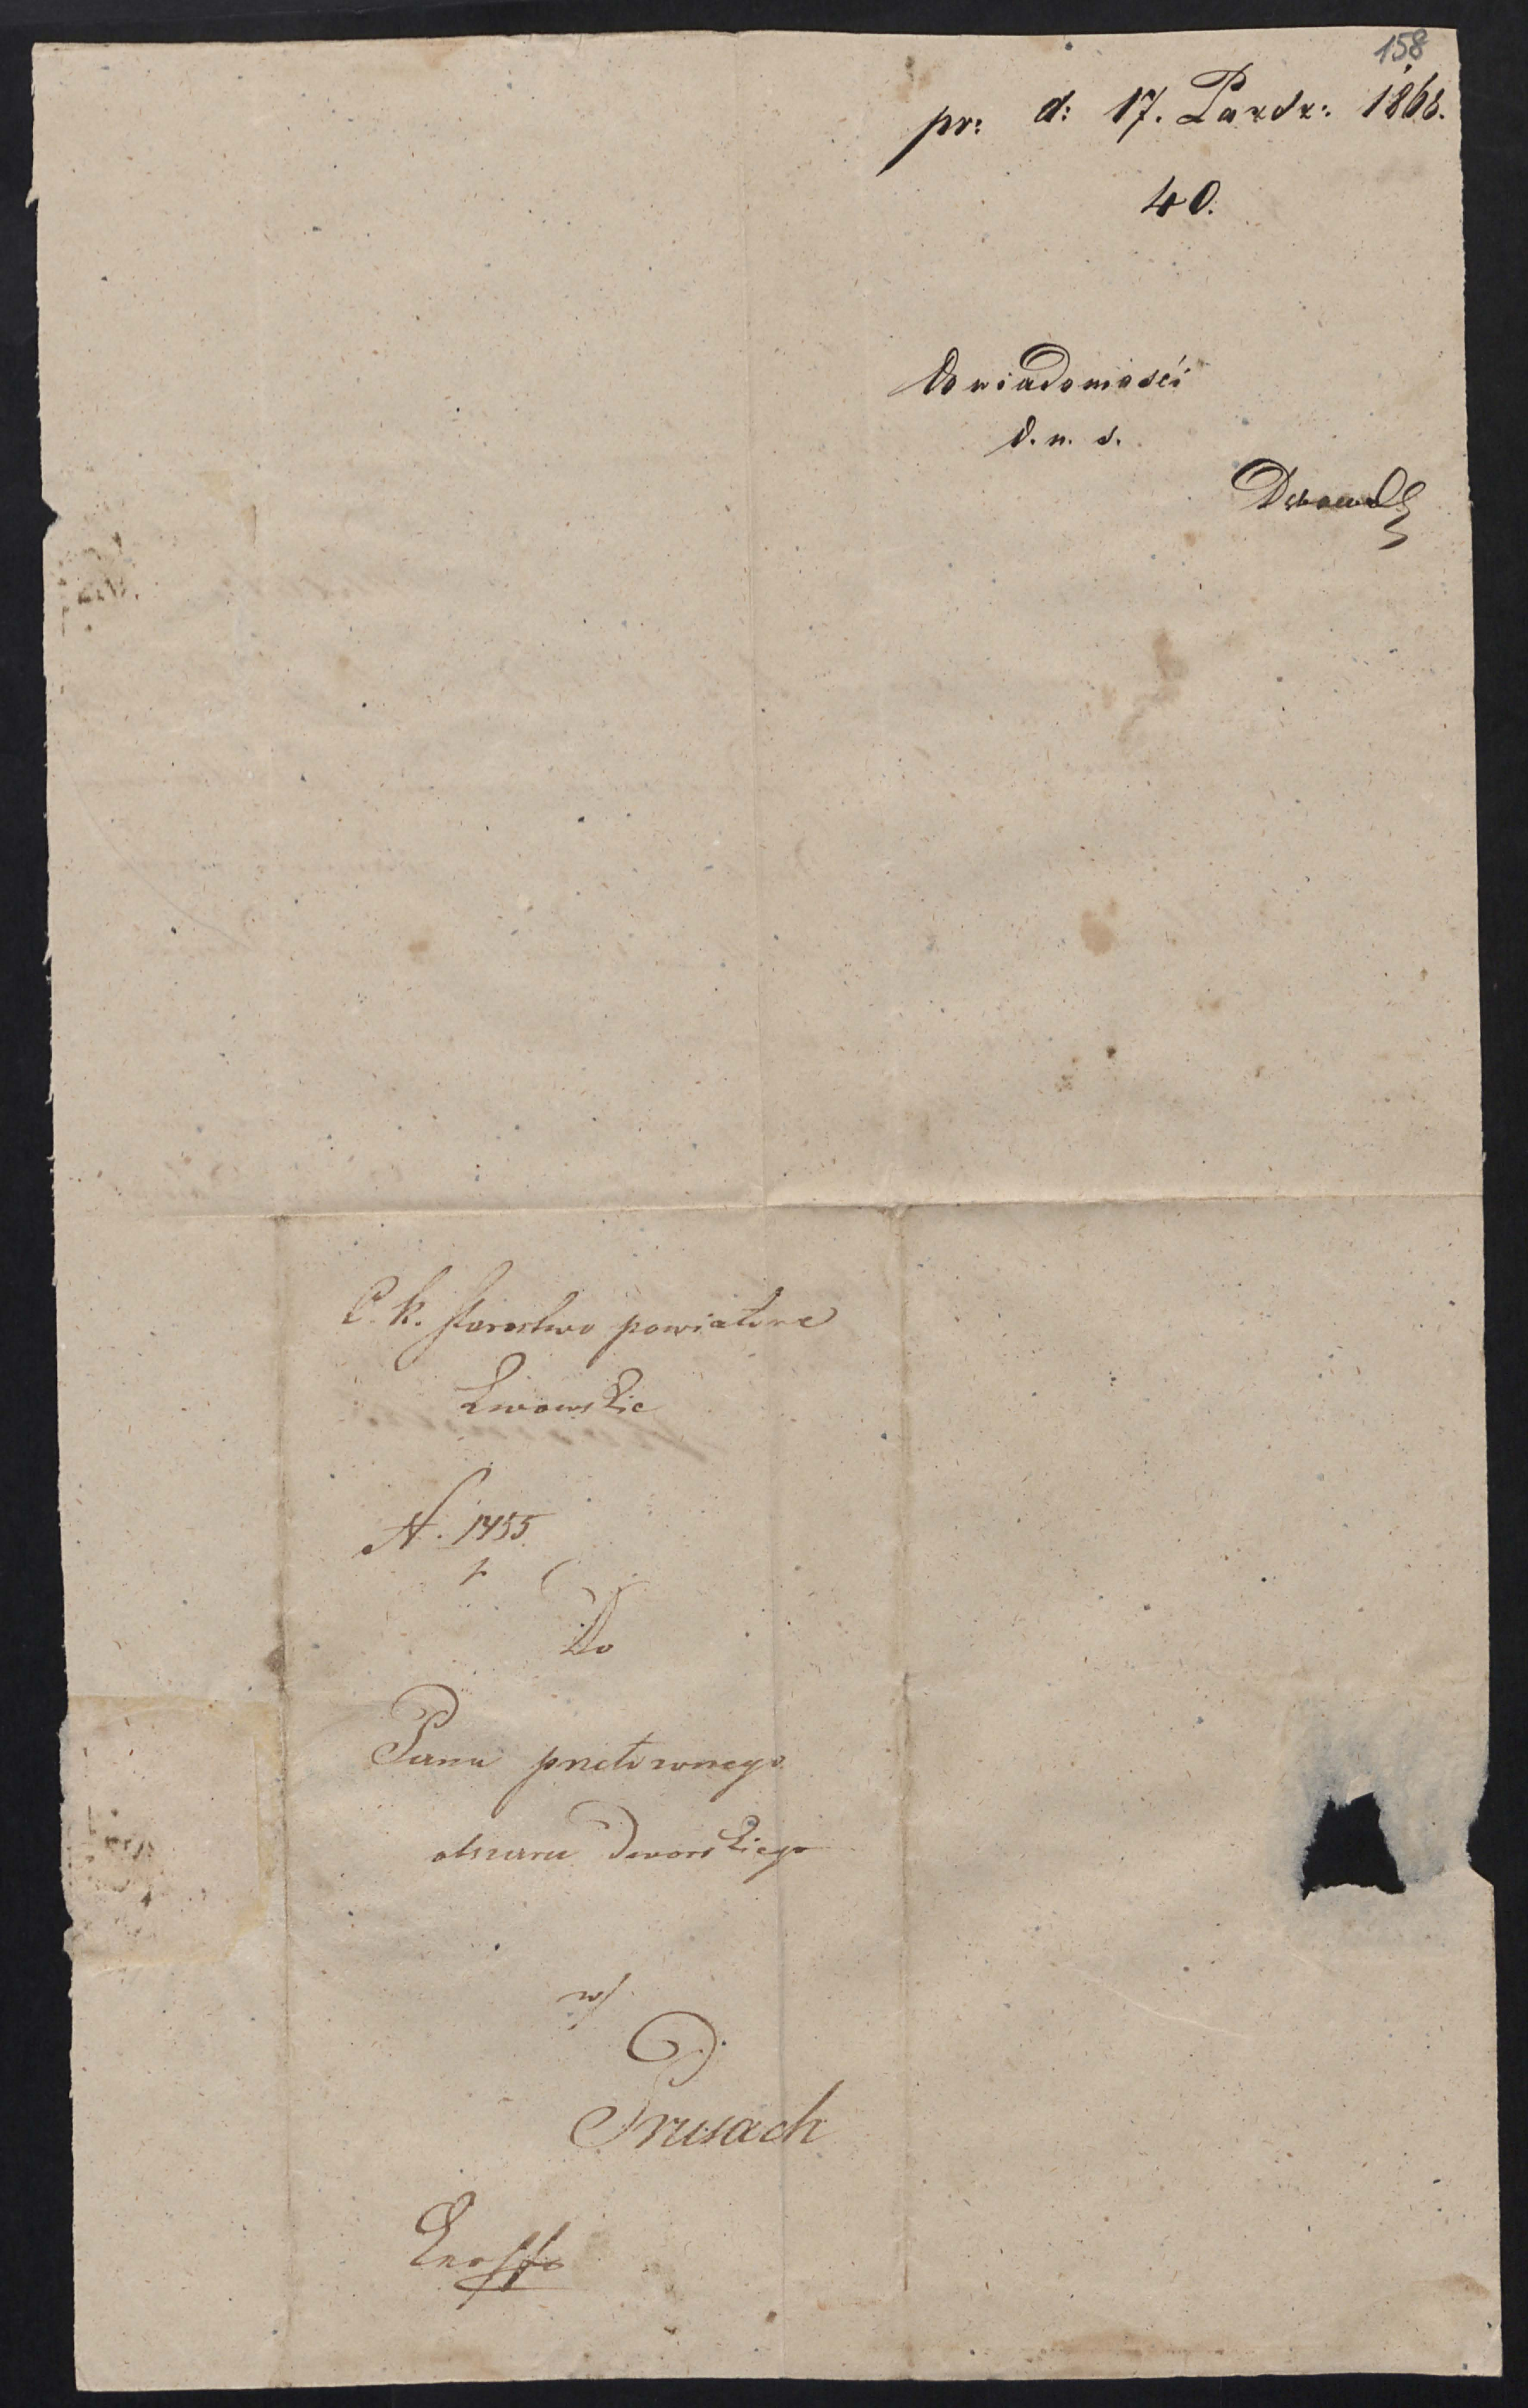 158
pr: d: 17. Pazdz: 1868.
40.
Do wiadomości
d. n. s.
C. k. Starostwo powiatowe
Lwowskie
N. 1455
Do
Pana przełożonego
obszaru Dworskiego
w/
Prusach